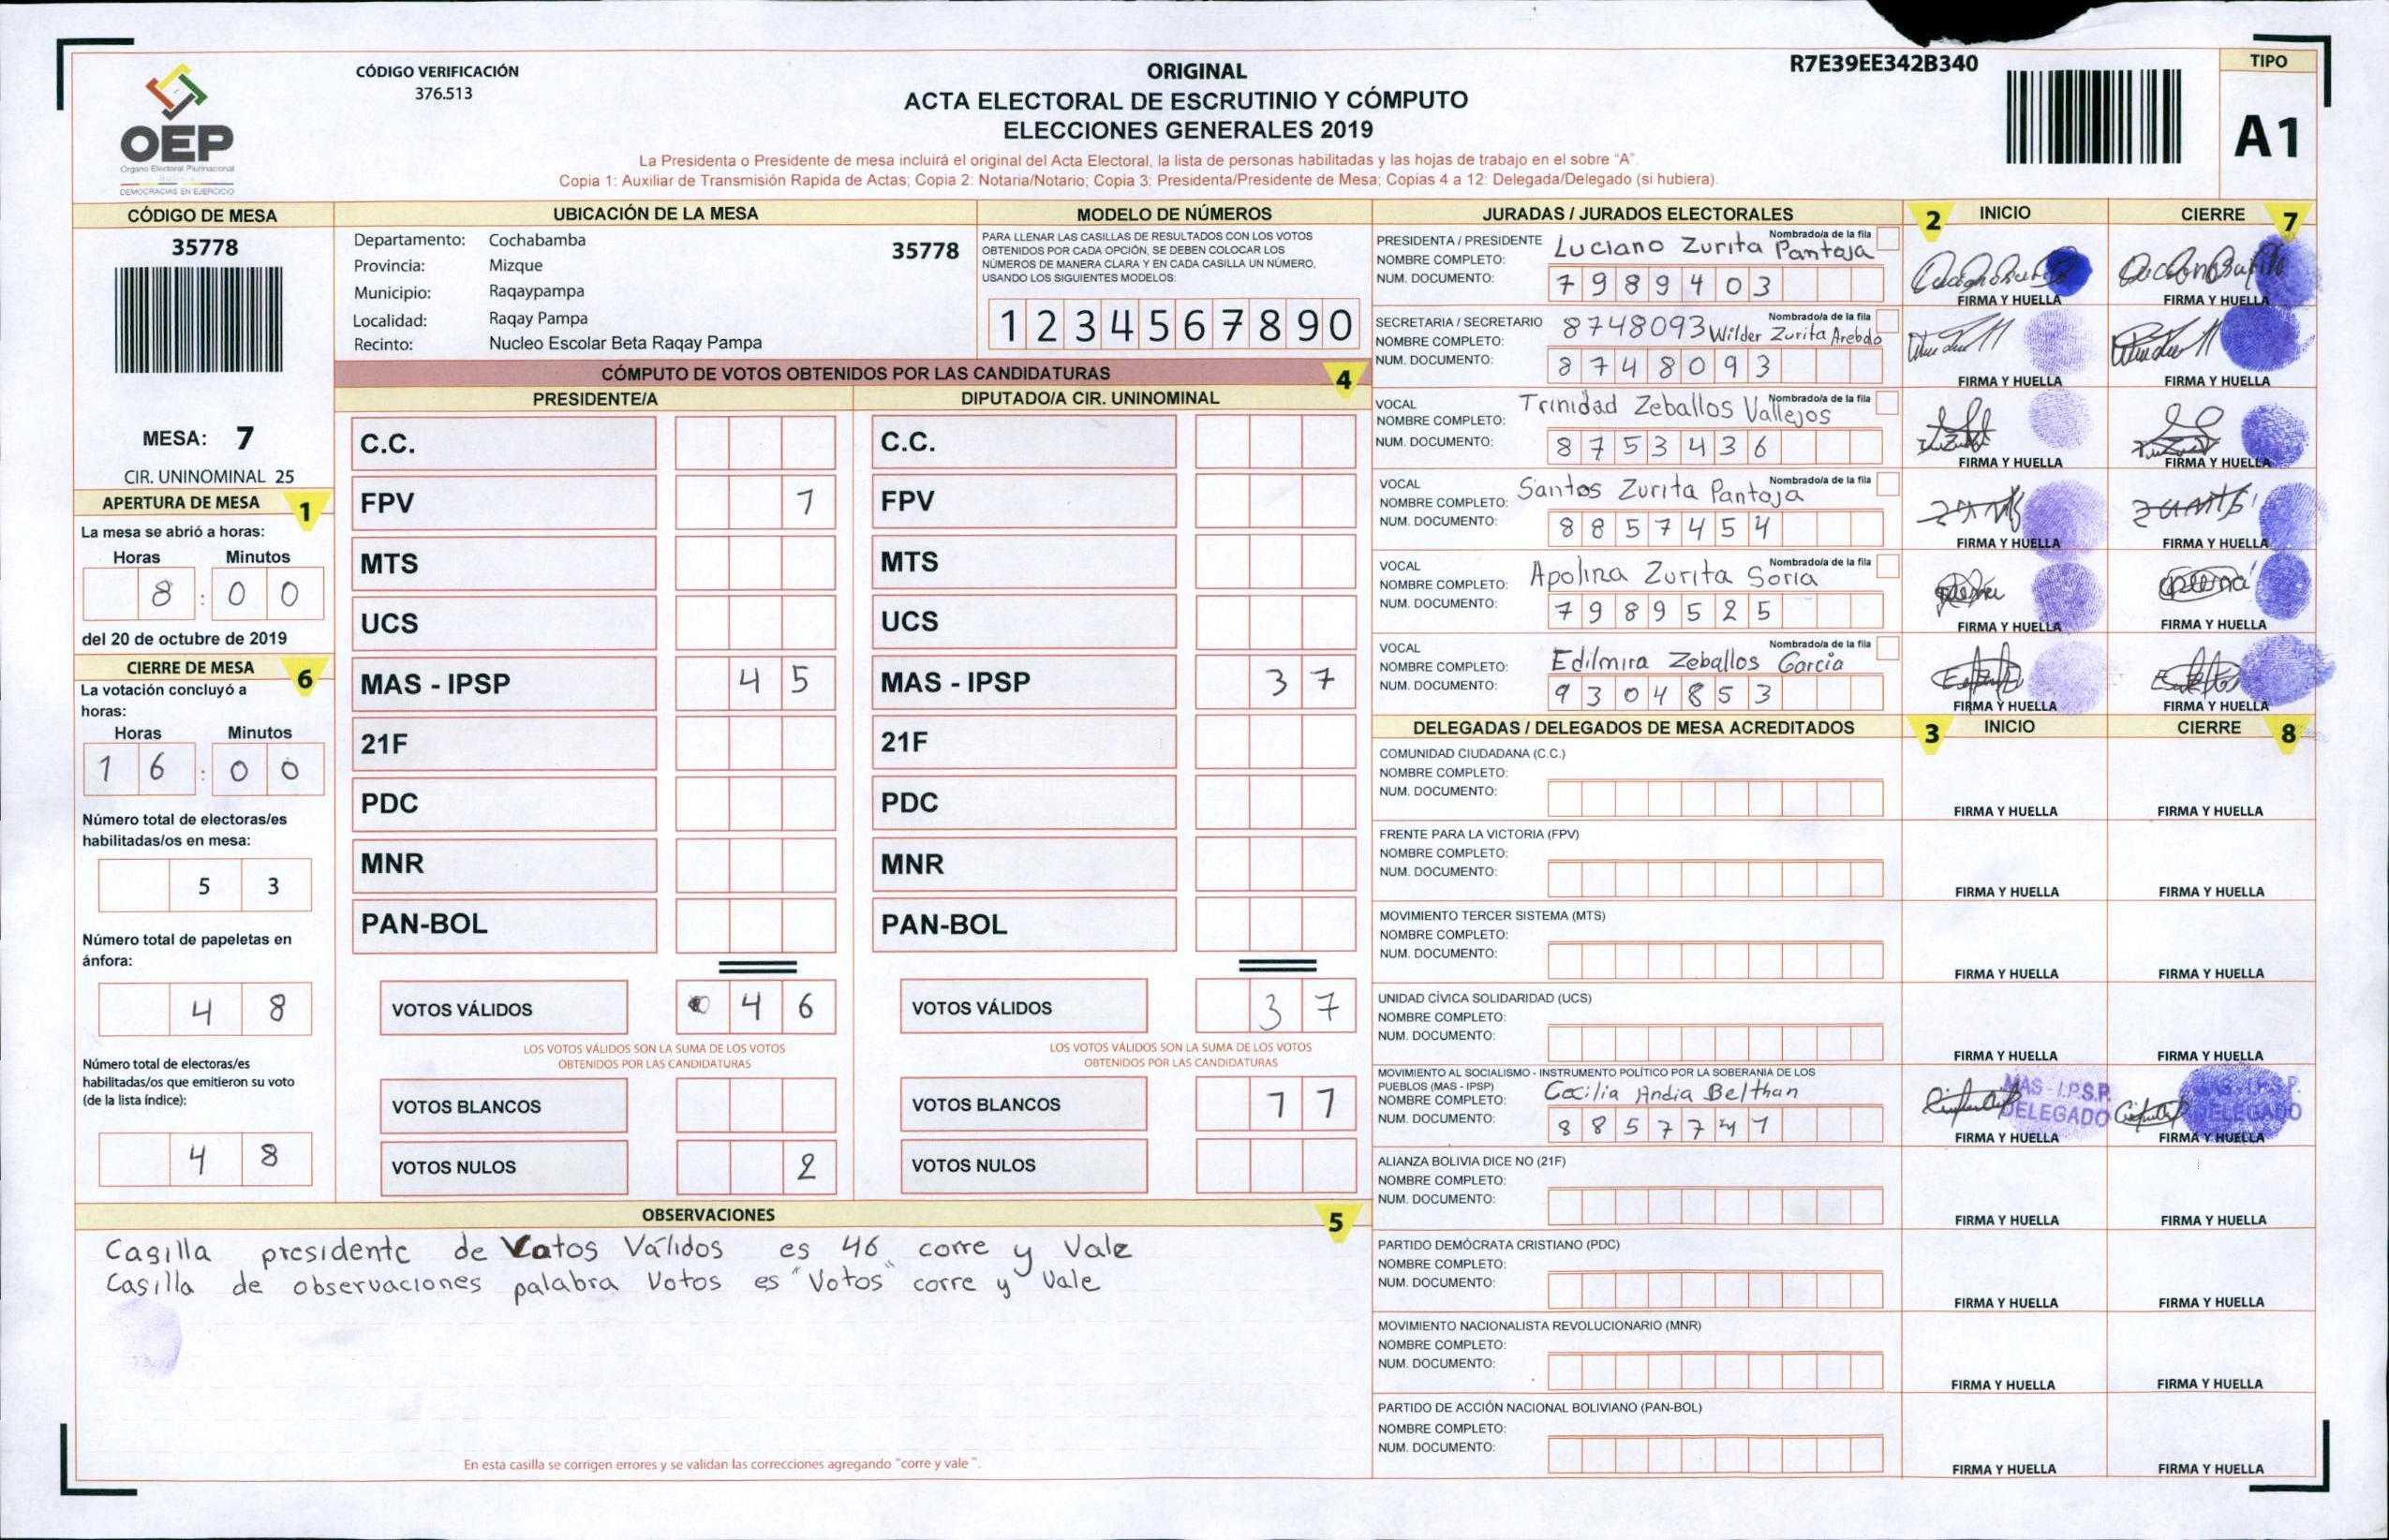 CÓDIGO VERIFICACIÓN
376.513
OEP
Órgano Electoral Plurinacional
DEMOCRACIAS EN EJERCICIO
ORIGINAL
ACTA ELECTORAL DE ESCRUTINIO Y CÓMPUTO
ELECCIONES GENERALES 2019
La Presidenta o Presidente de mesa incluirá el original del Acta Electoral, la lista de personas habilitadas y las hojas de trabajo en el sobre "A".
Copia 1: Auxiliar de Transmisión Rapida de Actas; Copia 2: Notaria/Notario; Copia 3: Presidenta/Presidente de Mesa; Copias 4 a 12: Delegada/Delegado (si hubiera).
R7E39EE342B340
TIPO
A1
CÓDIGO DE MESA
35778
MESA: 7
CIR. UNINOMINAL 25
APERTURA DE MESA 1
La mesa se abrió a horas:
Horas Minutos
8 : 0 0
del 20 de octubre de 2019
CIERRE DE MESA 6
La votación concluyó a
horas:
Horas Minutos
1 6 : 0 0
Número total de electoras/es
habilitadas/os en mesa:
5 3
Número total de papeletas en
ánfora:
4 8
Número total de electoras/es
habilitadas/os que emitieron su voto
(de la lista índice):
4 8
UBICACIÓN DE LA MESA
Departamento: Cochabamba 35778
Provincia: Mizque
Municipio: Raqaypampa
Localidad: Raqay Pampa
Recinto: Nucleo Escolar Beta Raqay Pampa
MODELO DE NÚMEROS
PARA LLENAR LAS CASILLAS DE RESULTADOS CON LOS VOTOS
OBTENIDOS POR CADA OPCIÓN, SE DEBEN COLOCAR LOS
NÚMEROS DE MANERA CLARA Y EN CADA CASILLA UN NÚMERO,
USANDO LOS SIGUIENTES MODELOS:
1 2 3 4 5 6 7 8 9 0
CÓMPUTO DE VOTOS OBTENIDOS POR LAS CANDIDATURAS 4
PRESIDENTE/A
C.C.
FPV 1
MTS
UCS
MAS - IPSP 4 5
21F
PDC
MNR
PAN-BOL
VOTOS VÁLIDOS 4 6
LOS VOTOS VÁLIDOS SON LA SUMA DE LOS VOTOS
OBTENIDOS POR LAS CANDIDATURAS
VOTOS BLANCOS
VOTOS NULOS 2
DIPUTADO/A CIR. UNINOMINAL
C.C.
FPV
MTS
UCS
MAS - IPSP 3 7
21F
PDC
MNR
PAN-BOL
VOTOS VÁLIDOS 3 7
LOS VOTOS VÁLIDOS SON LA SUMA DE LOS VOTOS
OBTENIDOS POR LAS CANDIDATURAS
VOTOS BLANCOS 1 1
VOTOS NULOS
OBSERVACIONES 5
Casilla presidente de Votos Válidos es 46 corre y Vale
Casilla de observaciones palabra Votos es "Votos" corre y Vale
En esta casilla se corrigen errores y se validan las correcciones agregando "corre y vale".
JURADAS / JURADOS ELECTORALES 2 INICIO CIERRE 7
PRESIDENTA / PRESIDENTE Nombrado/a de la fila
NOMBRE COMPLETO: Luciano Zurita Pantoja
NUM. DOCUMENTO: 7 9 8 9 4 0 3
FIRMA Y HUELLA FIRMA Y HUELLA
SECRETARIA / SECRETARIO Nombrado/a de la fila
NOMBRE COMPLETO: 8748093 Wilder Zurita Arebdo
NUM. DOCUMENTO: 8 7 4 8 0 9 3
FIRMA Y HUELLA FIRMA Y HUELLA
VOCAL Nombrado/a de la fila
NOMBRE COMPLETO: Trinidad Zeballos Vallejos
NUM. DOCUMENTO: 8 7 5 3 4 3 6
FIRMA Y HUELLA FIRMA Y HUELLA
VOCAL Nombrado/a de la fila
NOMBRE COMPLETO: Santos Zurita Pantoja
NUM. DOCUMENTO: 8 8 5 7 4 5 4
FIRMA Y HUELLA FIRMA Y HUELLA
VOCAL Nombrado/a de la fila
NOMBRE COMPLETO: Apolina Zurita Soria
NUM. DOCUMENTO: 7 9 8 9 5 2 5
FIRMA Y HUELLA FIRMA Y HUELLA
VOCAL Nombrado/a de la fila
NOMBRE COMPLETO: Edilmira Zeballos Garcia
NUM. DOCUMENTO: 9 3 0 4 8 5 3
FIRMA Y HUELLA FIRMA Y HUELLA
DELEGADAS / DELEGADOS DE MESA ACREDITADOS 3 INICIO CIERRE 8
COMUNIDAD CIUDADANA (C.C.)
NOMBRE COMPLETO:
NUM. DOCUMENTO:
FIRMA Y HUELLA FIRMA Y HUELLA
FRENTE PARA LA VICTORIA (FPV)
NOMBRE COMPLETO:
NUM. DOCUMENTO:
FIRMA Y HUELLA FIRMA Y HUELLA
MOVIMIENTO TERCER SISTEMA (MTS)
NOMBRE COMPLETO:
NUM. DOCUMENTO:
FIRMA Y HUELLA FIRMA Y HUELLA
UNIDAD CÍVICA SOLIDARIDAD (UCS)
NOMBRE COMPLETO:
NUM. DOCUMENTO:
FIRMA Y HUELLA FIRMA Y HUELLA
MOVIMIENTO AL SOCIALISMO - INSTRUMENTO POLÍTICO POR LA SOBERANIA DE LOS
PUEBLOS (MAS - IPSP)
NOMBRE COMPLETO: Cecilia Andia Belthan
NUM. DOCUMENTO: 8 8 5 7 7 4 1
MAS - I.P.S.P. MAS - I.P.S.P.
DELEGADO DELEGADO
FIRMA Y HUELLA FIRMA Y HUELLA
ALIANZA BOLIVIA DICE NO (21F)
NOMBRE COMPLETO:
NUM. DOCUMENTO:
FIRMA Y HUELLA FIRMA Y HUELLA
PARTIDO DEMÓCRATA CRISTIANO (PDC)
NOMBRE COMPLETO:
NUM. DOCUMENTO:
FIRMA Y HUELLA FIRMA Y HUELLA
MOVIMIENTO NACIONALISTA REVOLUCIONARIO (MNR)
NOMBRE COMPLETO:
NUM. DOCUMENTO:
FIRMA Y HUELLA FIRMA Y HUELLA
PARTIDO DE ACCIÓN NACIONAL BOLIVIANO (PAN-BOL)
NOMBRE COMPLETO:
NUM. DOCUMENTO:
FIRMA Y HUELLA FIRMA Y HUELLA